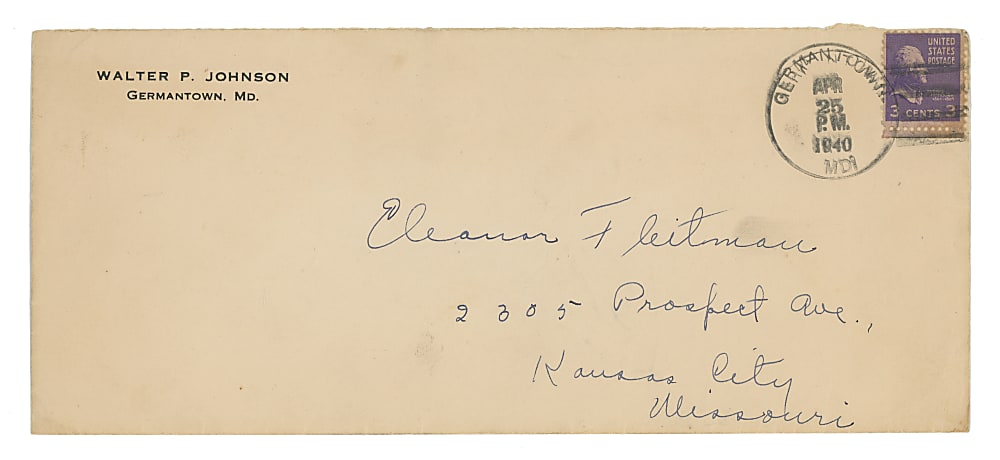 WALTER P. JOHNSON
GERMANTOWN, MD.
GERMANTOWN
APR
25
P.M.
1940
MD
UNITED
STATES
POSTAGE
3 CENTS 3
Eleanor Fleitman
2305 Prospect Ave.,
Kansas City
Missouri